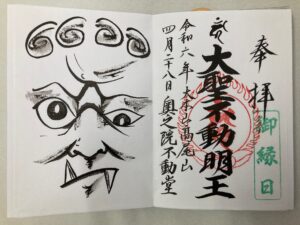 奉拝
御縁日
大聖不動明王
令和六年 大本山髙尾山
四月二十八日 奥之院不動堂